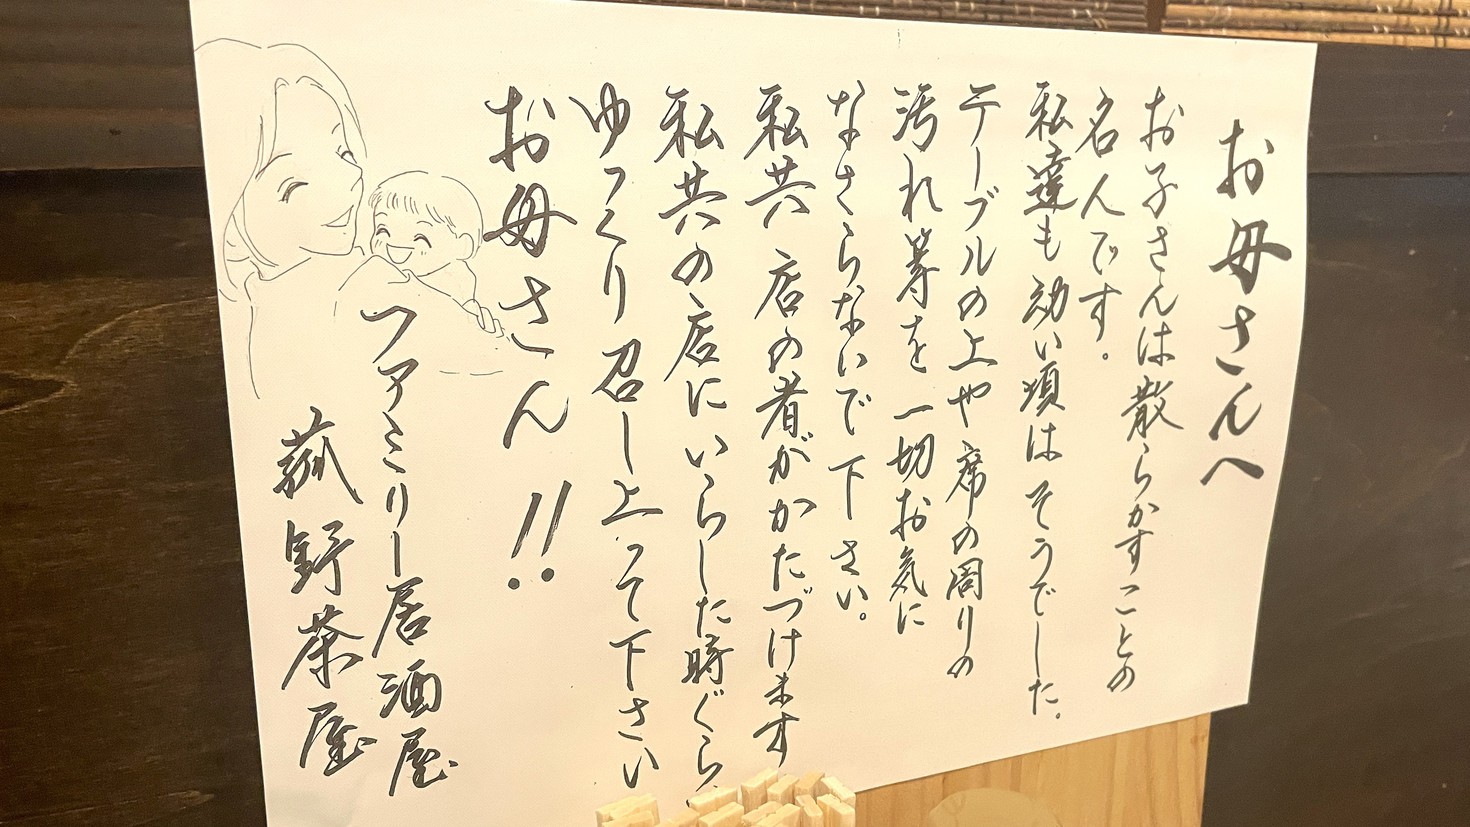 お母さんへ
お子さんは散らかすことの
名人です。
私達も幼い頃はそうでした。
テーブルの上や席の周りの
汚れ等を一切お気に
なさらないで下さい。
私共店の者がかたづけます
私共の店にいらした時ぐらい
ゆっくり召し上って下さい
お母さん!!
ファミリー居酒屋
狐野茶屋